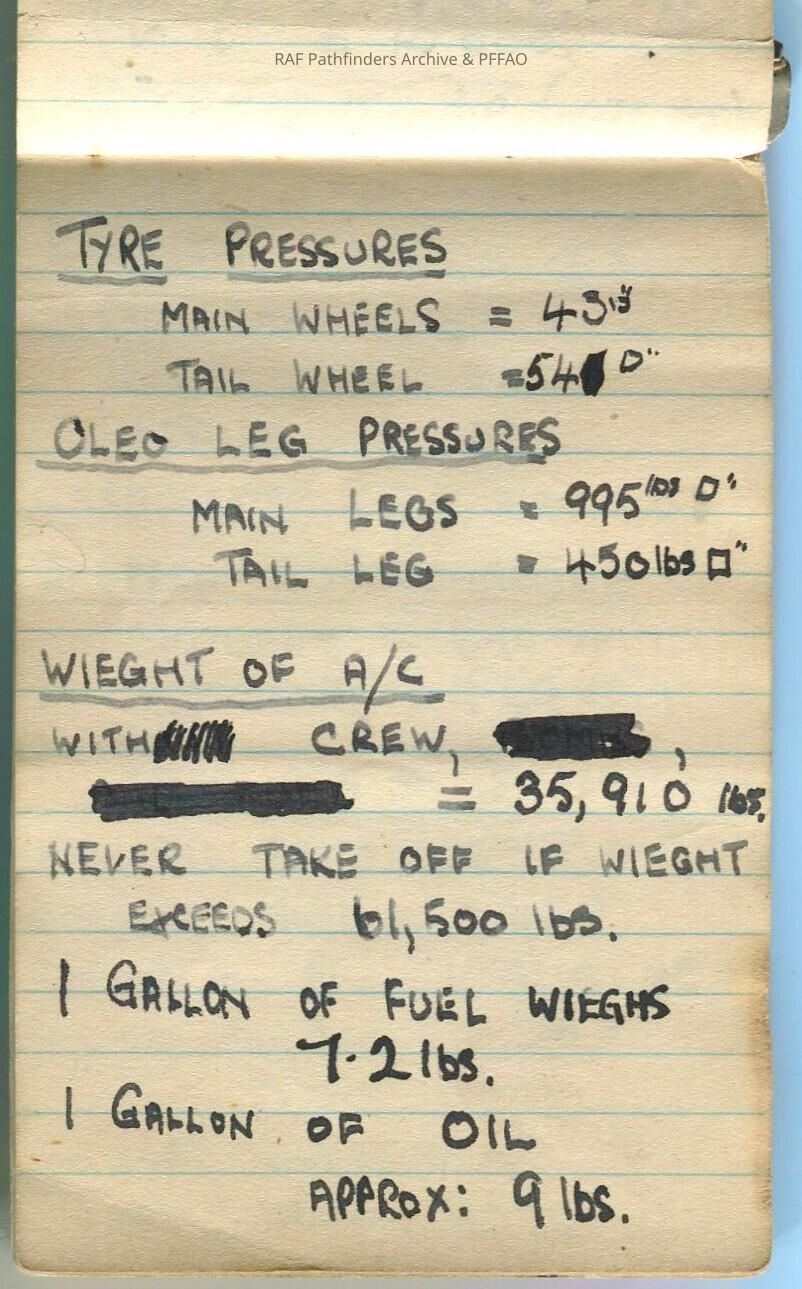 RAF Pathfinders Archive & PFFAO
TYRE PRESSURES
MAIN WHEELS = 43
TAIL WHEEL = 54 □"
OLEO LEG PRESSURES
MAIN LEGS = 995 lbs □"
TAIL LEG = 450 lbs □"
WIEGHT OF A/C
WITH CREW, ,
= 35,910 lbs.
NEVER TAKE OFF IF WIEGHT
EXCEEDS 61,500 lbs.
1 GALLON OF FUEL WIEGHS
7.2 lbs.
1 GALLON OF OIL
APPROX: 9 lbs.